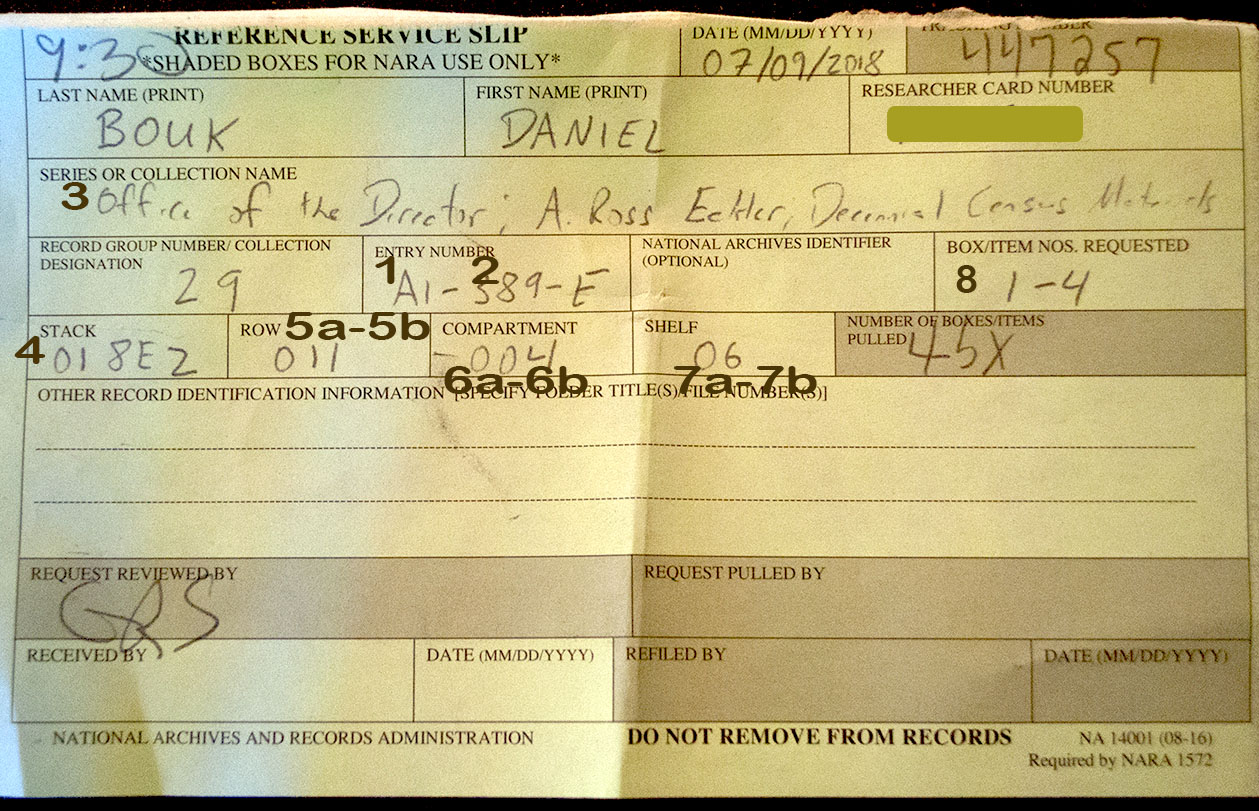 9:30 REFERENCE SERVICE SLIP
*SHADED BOXES FOR NARA USE ONLY*
DATE (MM/DD/YYYY)
07/09/2018
NUMBER
447257
LAST NAME (PRINT)
BOUK
FIRST NAME (PRINT)
DANIEL
RESEARCHER CARD NUMBER
SERIES OR COLLECTION NAME
3 Office of the Director; A. Ross Eckler, Decennial Census Materials
RECORD GROUP NUMBER/ COLLECTION
DESIGNATION
29
ENTRY NUMBER
1 2
A1-589-E
NATIONAL ARCHIVES IDENTIFIER
(OPTIONAL)
BOX/ITEM NOS. REQUESTED
8 1-4
STACK
4 018E2
ROW 5a-5b
011
COMPARTMENT
004
6a-6b
SHELF
06
7a-7b
NUMBER OF BOXES/ITEMS
PULLED 45X
OTHER RECORD IDENTIFICATION INFORMATION [SPECIFY FOLDER TITLE(S)/FILE NUMBER(S)]
REQUEST REVIEWED BY
REQUEST PULLED BY
RECEIVED BY
DATE (MM/DD/YYYY)
REFILED BY
DATE (MM/DD/YYYY)
NATIONAL ARCHIVES AND RECORDS ADMINISTRATION
DO NOT REMOVE FROM RECORDS
NA 14001 (08-16)
Required by NARA 1572